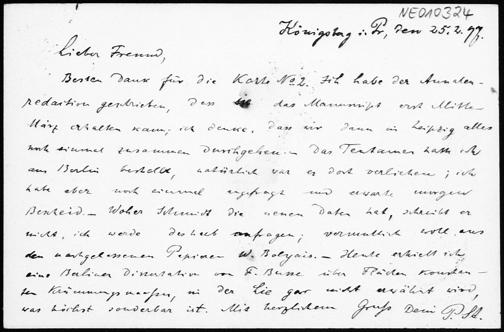 NE010324
Königsberg i. Pr, den 25.2.97.
Lieber Freund,
Besten Dank für die Karte No 2. Ich habe der Annalen-
redaktion geschrieben, dass das Manuscript erst Mitte
März erhalten kann; ich denke, dass wir dann in Leipzig alles
noch einmal zusammen durchgehen. – Das Tentamen hatte ich
aus Berlin bestellt, natürlich war es dort verliehen; ich
habe aber noch einmal angefragt und erwarte morgen
Bescheid. – Woher Schmidt die neuen Daten hat, schreibt er
nicht, ich werde deshalb anfragen; vermutlich wohl aus
den nachgelassenen Papieren W. Bolyais. – Heute erhielt ich
eine Berliner Dissertation von F. Busse über Flächen konstan-
ten Krümmungsmasses, in der Lie gar nicht erwähnt wird,
was höchst sonderbar ist. Mit herzlichem Gruss Dein P. St.